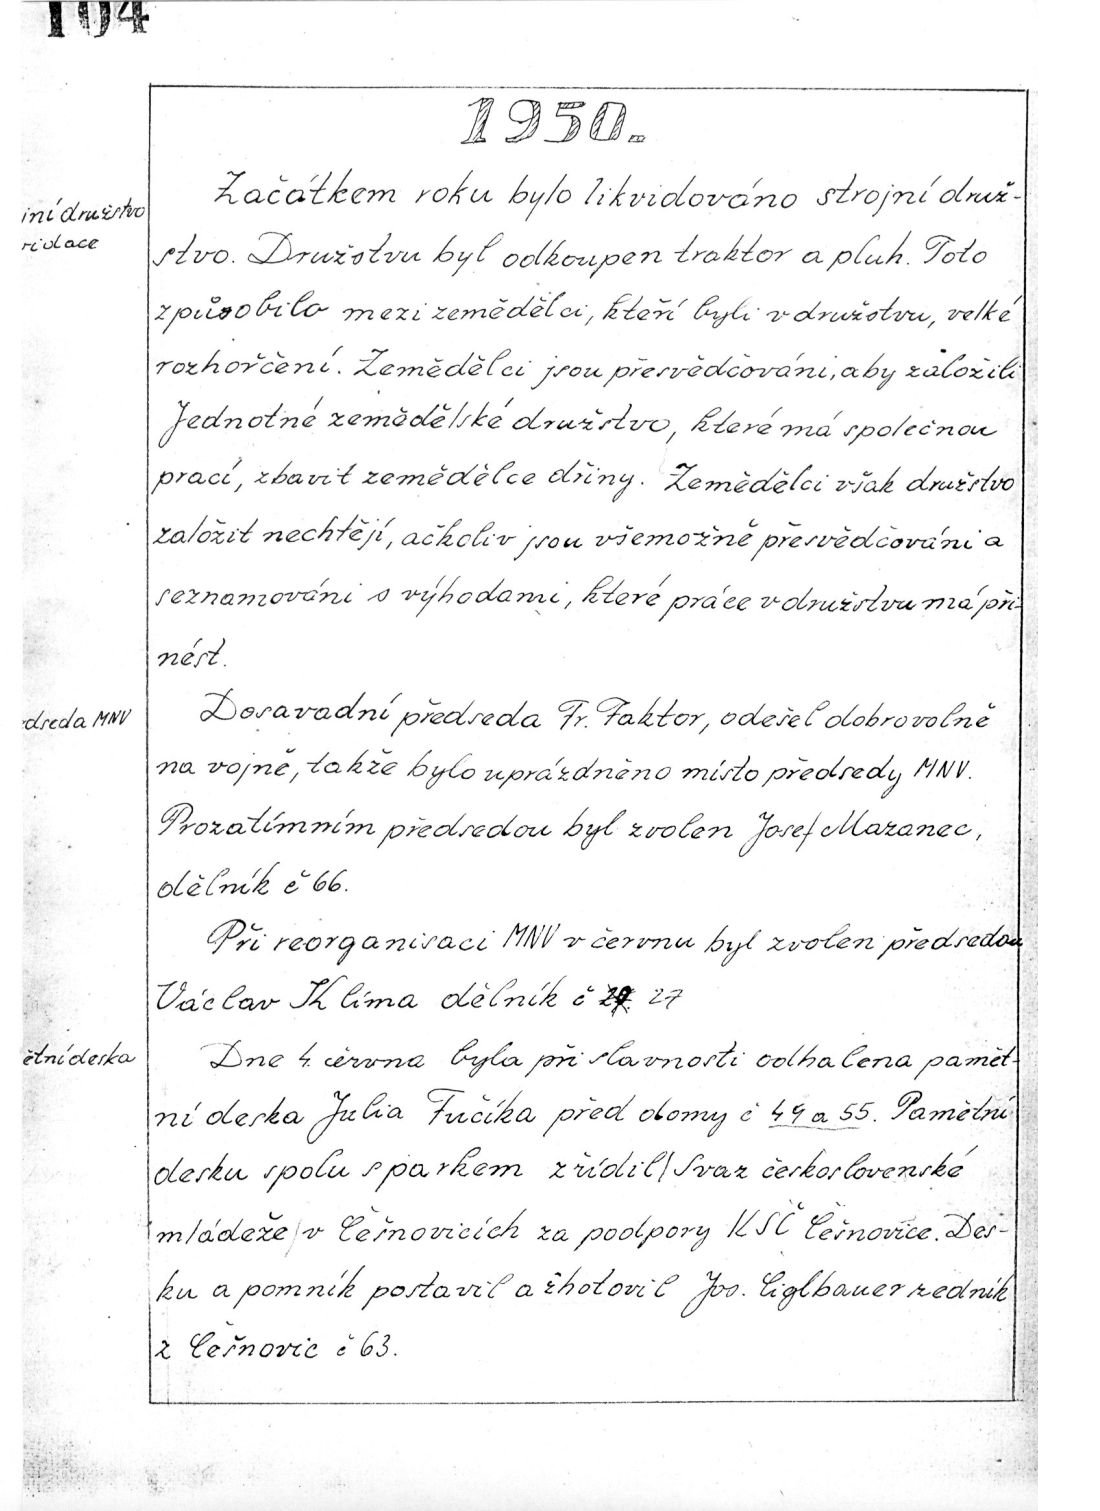 104
1950.
iní družstvo
ridace
Začátkem roku bylo likvidováno strojní druž-
stvo. Družstvu byl odkoupen traktor a pluh. Toto
způsobilo mezi zemědělci, kteří byli v družstvu, velké
rozhořčení. Zemědělci jsou přesvědčováni, aby založili
Jednotné zemědělské družstvo, které má společnou
prací, zbavit zemědělce dřiny. Zemědělci však družstvo
založit nechtějí, ačkoliv jsou všemožně přesvědčováni a
seznamováni s výhodami, které práce v družstvu má při-
nést.
dseda MNV
Dosavadní předseda Fr. Faktor, odešel dobrovolně
na vojně, takže bylo uprázdněno místo předsedy MNV.
Prozatímním předsedou byl zvolen Josef Mazanec,
dělník č 66.
Při reorganisaci MNV v červnu byl zvolen předsedou
Václav Klíma dělník č 27
ětní deska
Dne 4. června byla při slavnosti odhalena pamět-
ní deska Julia Fučíka před domy č 49 a 55. Pamětní
desku spolu s parkem zřídil/Svaz československé
mládeže/v Češnovicích za podpory KSČ Češnovice. Des-
ku a pomník postavil a zhotovil Jos. Ciglbauer zedník
z Češnovic č 63.